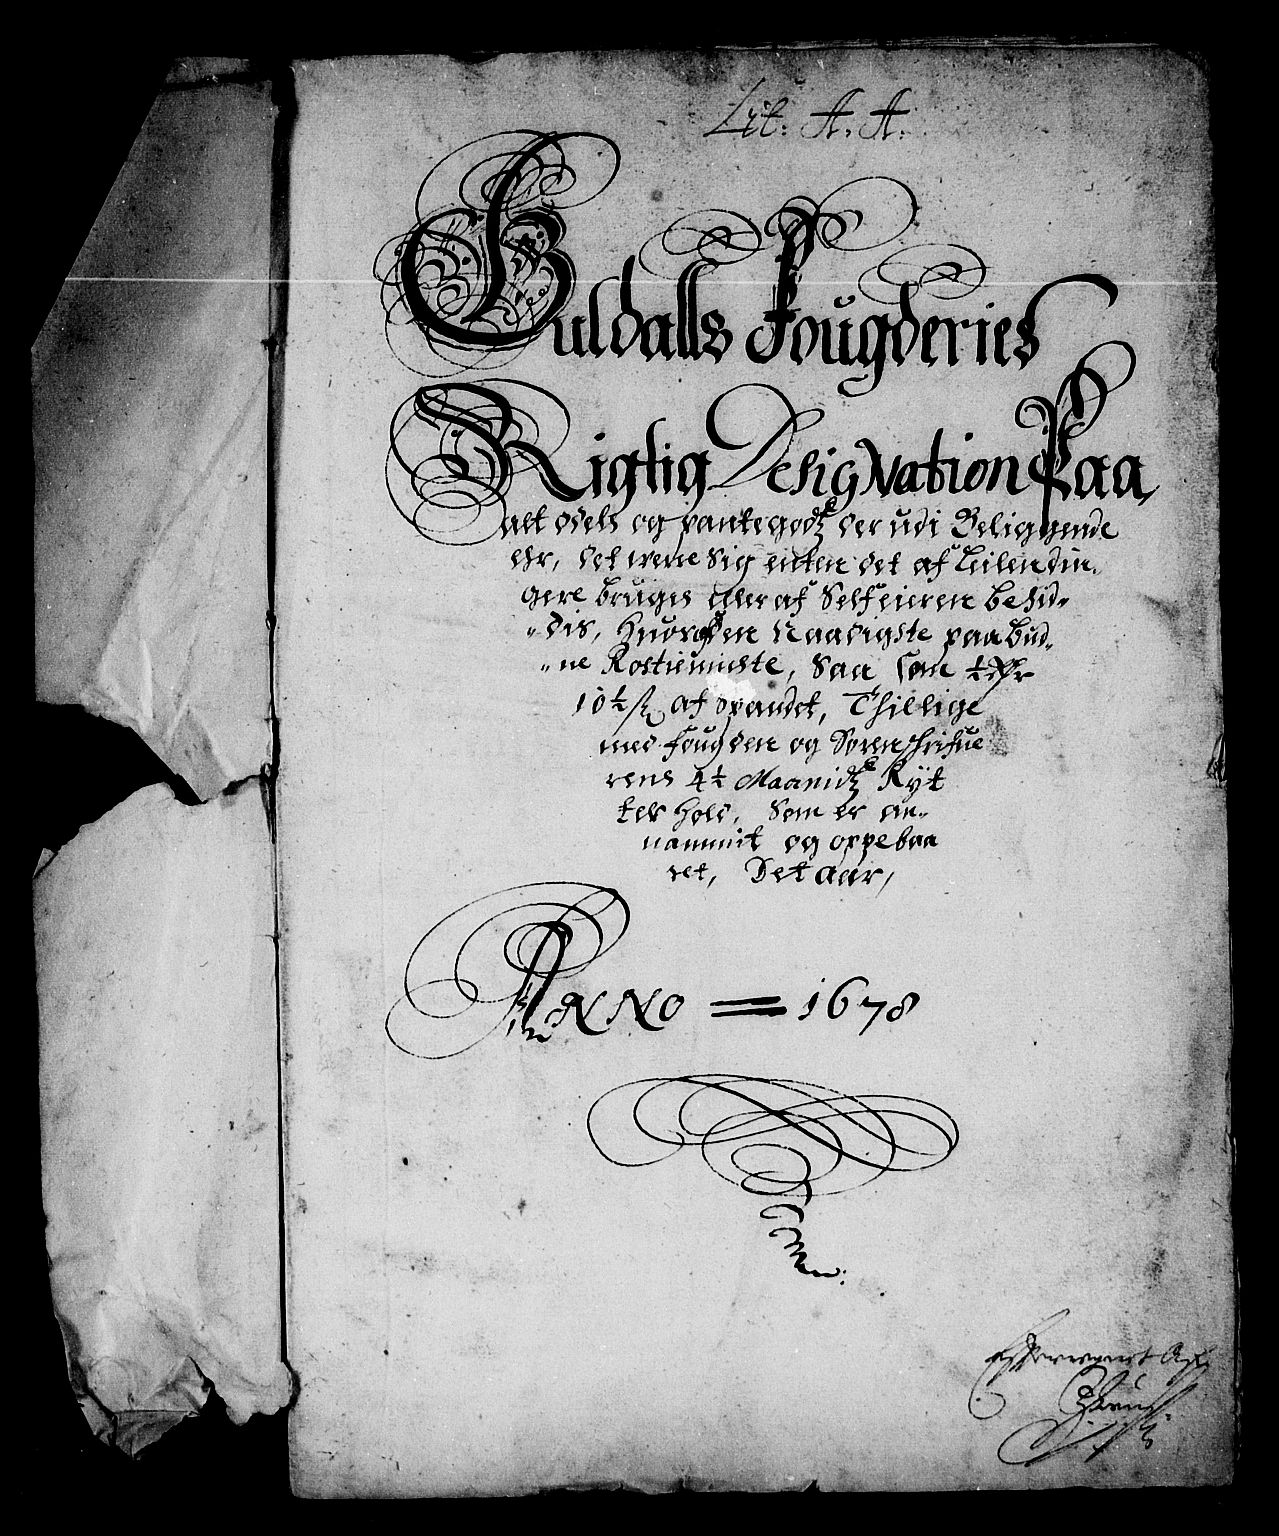 Lit: A. A.
Guldalls Fougderies
Rigtig Designation Paa
alt odels og pantegodtz der udi Beliggende
Ehr, det were sig enten det af Leilendin,
gere bruges eller af Selfeieren besid„
„dis, Huoraf den Naadigste paabud„
„ne Rostieniste, Saa som ½ Dlr
10½ s af Spandet, Thillige
med fougden og Sorenschrifue
rens 4½ Maanidtz Rÿt
ter hold, Som er an„
nammit og oppebaa
ret, Det aar,
ANNO = 1678